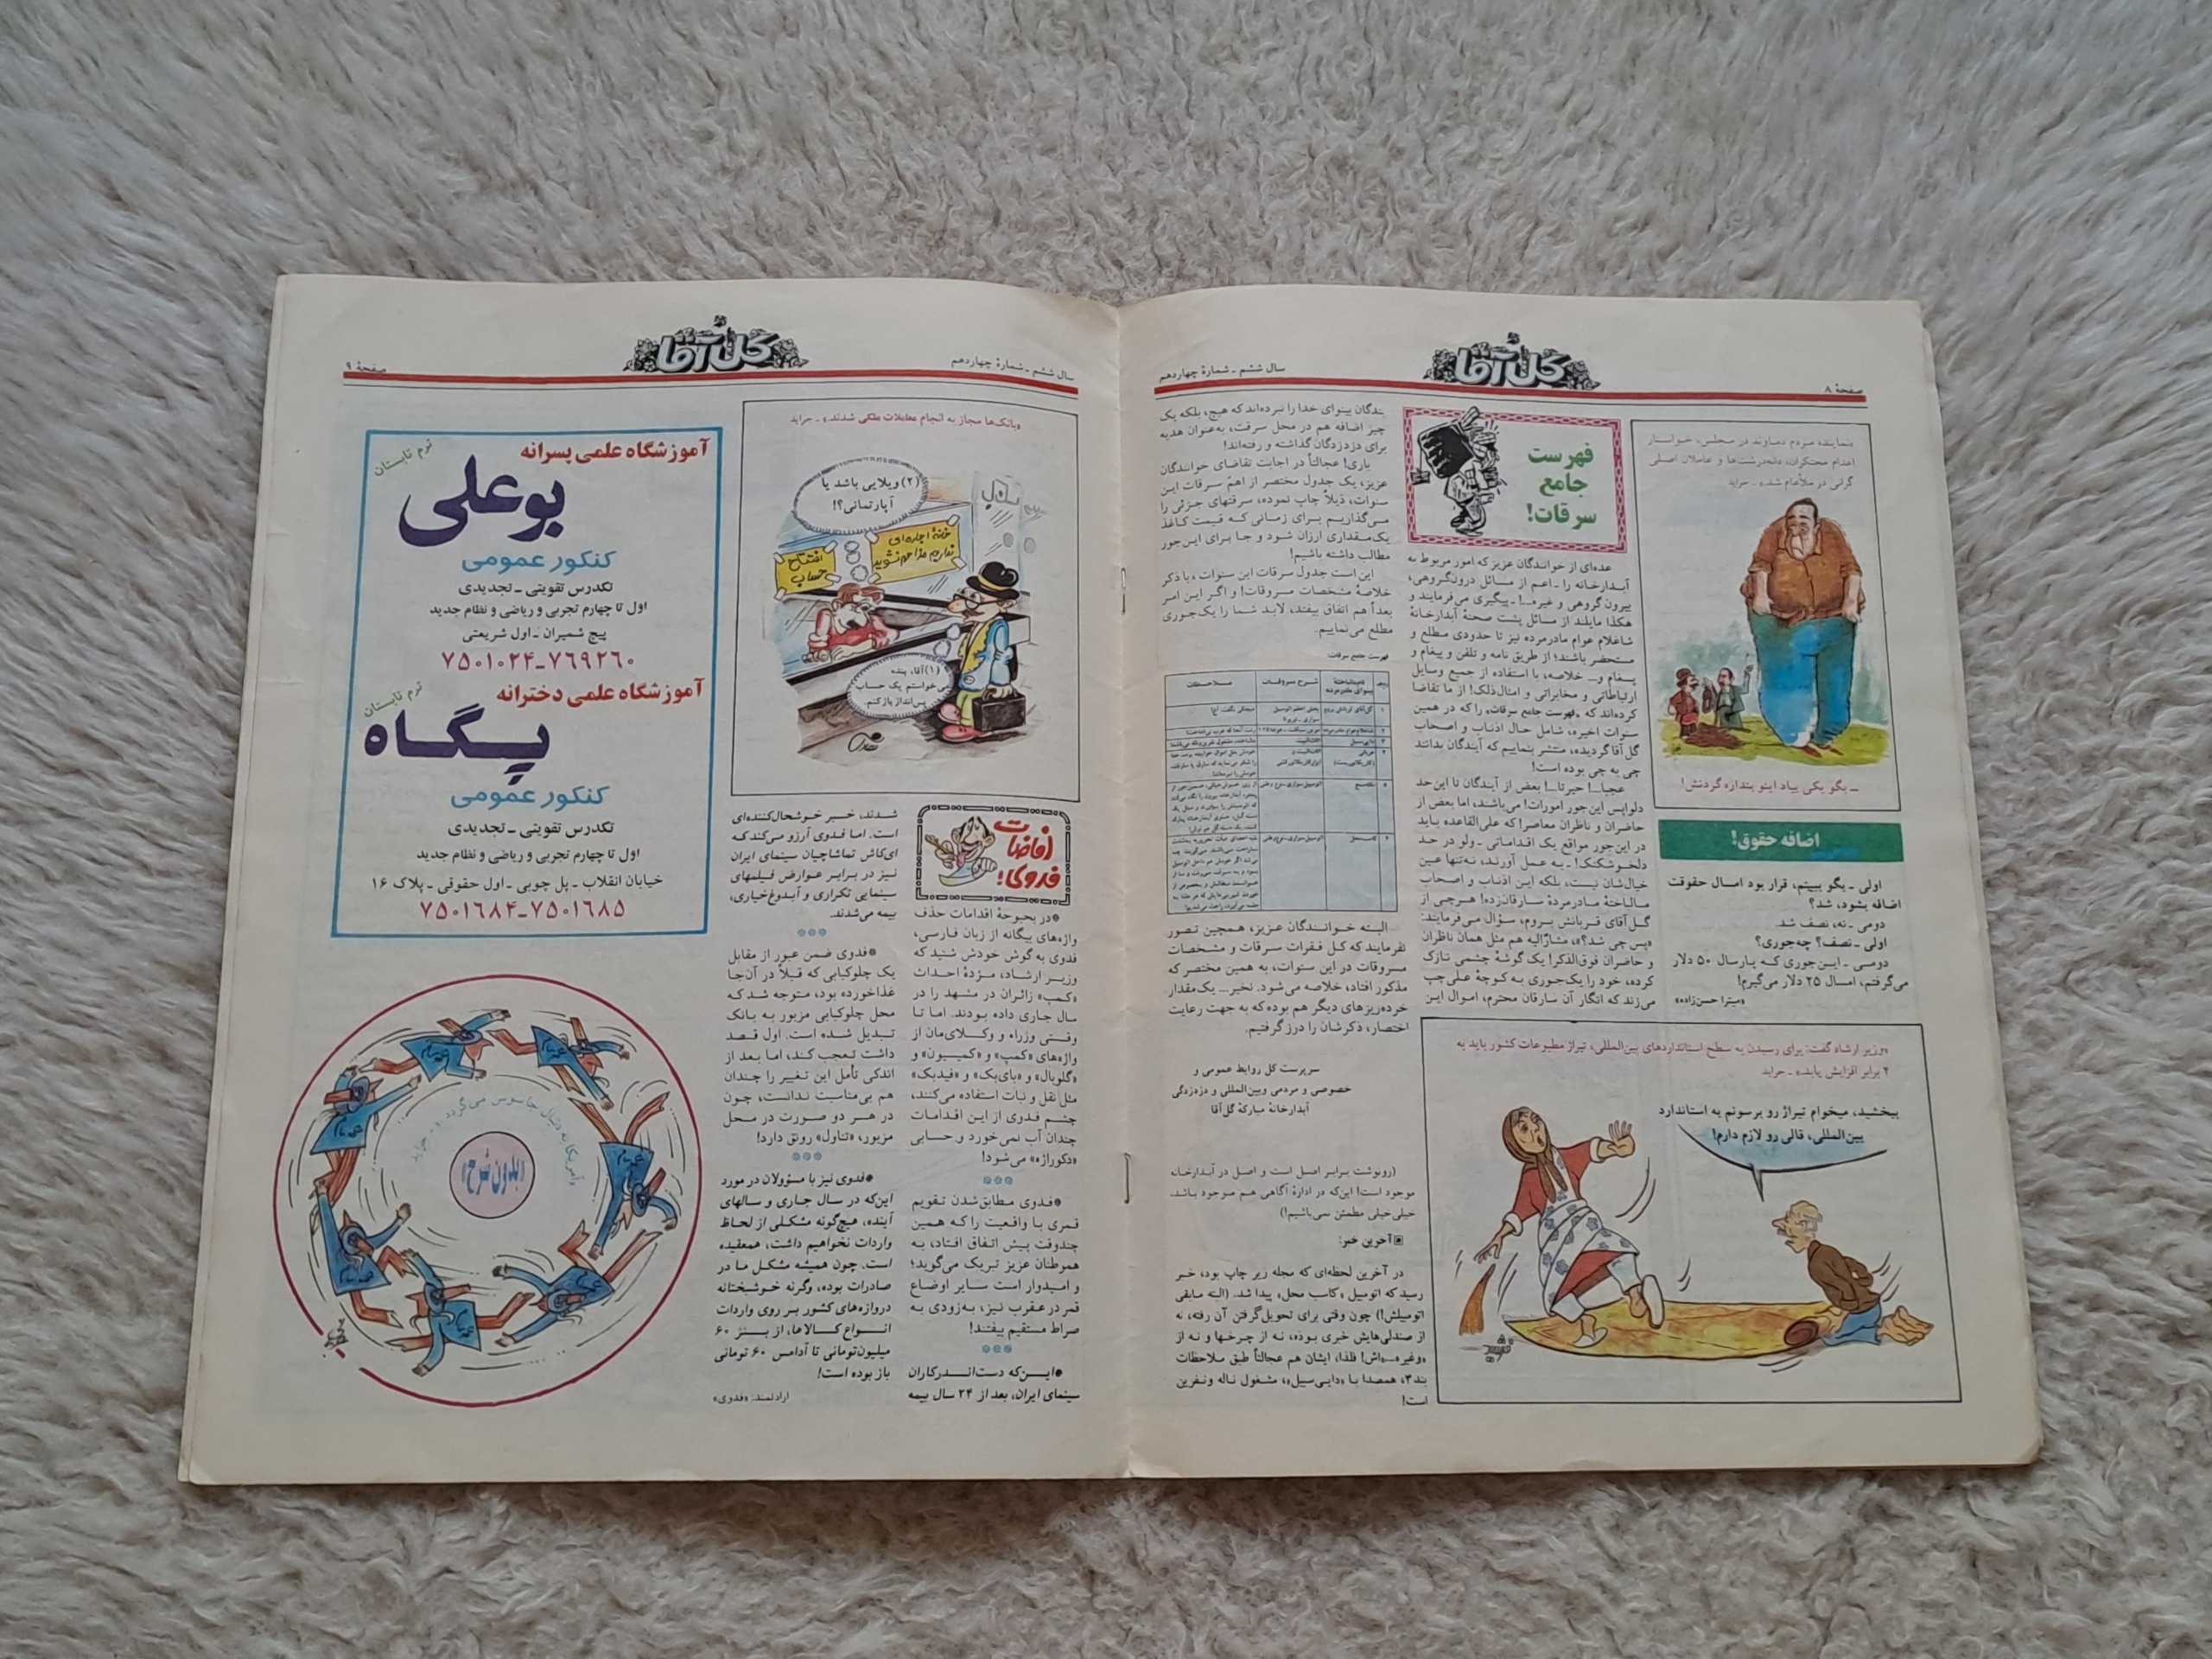 صفحهٔ ۸
گل آقا
سال ششم ـ شمارهٔ چهاردهم
«نماینده مردم دماوند در مجلس، خواستار
اعدام محتکران، دانه‌درشت‌ها و عاملان اصلی
گرانی در ملأعام شد.» ـ جراید
ـ بگو یکی بیاد اینو بندازه گردنش!
اضافه حقوق!
اولی ـ بگو ببینم، قرار بود امسال حقوقت
اضافه بشود، شد؟
دومی ـ نه، نصف شد.
اولی ـ نصف؟ چه‌جوری؟
دومی ـ این‌جوری که پارسال ۵۰ دلار
می‌گرفتم، امسال ۲۵ دلار می‌گیرم!
«میترا حسن‌زاده»
فهرست
جامع
سرقات!
عده‌ای از خوانندگان عزیز که امور مربوط به
آبدارخانه را ـ اعم از مسائل درون‌گروهی،
برون‌گروهی و غیره...! ـ پیگیری می‌فرمایند و
هکذا مایلند از مسائل پشت صحنهٔ آبدارخانهٔ
شاغلام عوام مادرمرده نیز تا حدودی مطلع و
مستحضر باشند؛ از طریق نامه و تلفن و پیغام و
پسغام و... خلاصه، با استفاده از جمیع وسایل
ارتباطاتی و مخابراتی و امثال‌ذلک! از ما تقاضا
کرده‌اند که «فهرست جامع سرقات» را که در همین
سنوات اخیره، شامل حال اذناب و اصحاب
گل آقا گردیده، منتشر بنماییم که آیندگان بدانند
چی به چی بوده است!
عجبا...! حیرتا...! بعض از آیندگان تا این‌حد
دلواپس این‌جور امورات! می‌باشند، اما بعض از
حاضران و ناظران معاصر! که علی‌القاعده باید
در این‌جور مواقع یک اقداماتی ـ ولو در حد
دلخوشکنک! ـ به عمل آورند، نه‌تنها عین
خیال‌شان نیست، بلکه این اذناب و اصحاب
مالباختهٔ مادرمردهٔ سارقان‌زده! هرچی از
گل‌آقای قربانش بروم، سؤال می‌فرمایند:
«پس چی شد؟»، مشارٌالیه هم مثل همان ناظران
و حاضران فوق‌الذکر! یک گوشهٔ چشمی نازک
کرده، خود را یک‌جوری به کوچهٔ علی‌چپ
می‌زند که انگار آن سارقان محترم، اموال این
بندگان بینوای خدا را نبرده‌اند که هیچ، بلکه یک
چیز اضافه هم در محل سرقت، به‌عنوان هدیه
برای دزدزدگان گذاشته و رفته‌اند!
باری! عجالتاً در اجابت تقاضای خوانندگان
عزیز، یک جدول مختصر از اهمّ سرقات این
سنوات، ذیلاً چاپ نموده، سرقتهای جزئی را
می‌گذاریم برای زمانی که قیمت کاغذ
یک‌مقداری ارزان شود و جا برای این‌جور
مطالب داشته باشیم!
این است جدول سرقات این سنوات، با ذکر
خلاصهٔ مشخصات مسروقات! و اگر این امر
بعداً هم اتفاق بیفتد، لابد شما را یک‌جوری
مطلع می‌نماییم.
فهرست جامع سرقات:
شرح مسروقات
ملاحظات
البته خوانندگان عزیز، همچین تصور
نفرمایند که کل فقرات سرقات و مشخصات
مسروقات در این سنوات، به همین مختصر که
مذکور افتاد، خلاصه می‌شود. نخیر... یک‌مقدار
خرده‌ریزهای دیگر هم بوده که به جهت رعایت
اختصار، ذکرشان را درز گرفتیم.
سرپرست کل روابط عمومی و
خصوصی و مردمی وبین‌المللی و دزدزدگی
آبدارخانهٔ مبارکهٔ گل‌آقا
(رونوشت برابر اصل است و اصل در آبدارخانه
موجود است! این‌که در ادارهٔ آگاهی هم موجود باشد،
خیلی‌خیلی مطمئن نمی‌باشیم!)
آخرین خبر:
در آخرین لحظه‌ای که مجله زیر چاپ بود، خبر
رسید که اتومبیل «کاسب محل» پیدا شد. (البته مابقی
اتومبیلش!) چون وقتی برای تحویل‌گرفتن آن رفته، نه
از صندلی‌هایش خبری بوده، نه از چرخها و نه از
«وغیره...»اش! فلذا، ایشان هم عجالتاً طبق ملاحظات
بند۳، همصدا با «دایی‌سیبل»، مشغول ناله ونفرین
است!
«وزیر ارشاد گفت: برای رسیدن به سطح استانداردهای بین‌المللی، تیراژ مطبوعات کشور باید به
۲ برابر افزایش یابد.» ـ جراید
ببخشید، میخوام تیراژ رو برسونم به استاندارد
بین‌المللی، قالی رو لازم دارم!
سال ششم ـ شمارهٔ چهاردهم
گل آقا
صفحهٔ ۹
«بانک‌ها مجاز به انجام معاملات ملکی شدند.» ـ جراید
(۲) ویلایی باشد یا
آپارتمانی؟!
خانهٔ اجاره‌ای
نداریم مزاحم نشوید
افتتاح
حساب
(۱) آقا، بنده
می‌خواستم یک حساب
پس‌انداز بازکنم.
افاضات
فدوی!
در بحبوحهٔ اقدامات حذف
واژه‌های بیگانه از زبان فارسی،
فدوی به گوش خودش شنید که
وزیر ارشاد، مژدهٔ احداث
«کمپ» زائران در مشهد را در
سال جاری داده بودند. اما تا
وقتی وزراء و وکلای‌مان از
واژه‌های «کمپ» و «کمیسیون» و
«گلوبال» و «بای‌بک» و «فیدبک»
مثل نقل و نبات استفاده می‌کنند،
چشم فدوی از این اقدامات
چندان آب نمی‌خورد و حسابی
«دکوراژه» می‌شود!
فدوی مطابق‌شدن تقویم
قمری با واقعیت را که همین
چندوقت پیش اتفاق افتاد، به
هموطنان عزیز تبریک می‌گوید؛
و امیدوار است سایر اوضاع
قمر در عقرب نیز، به‌زودی به
صراط مستقیم بیفتند!
این‌که دست‌اندرکاران
سینمای ایران، بعد از ۲۴ سال بیمه
شدند، خبر خوشحال‌کننده‌ای
است. اما فدوی آرزو می‌کند که
ای‌کاش تماشاچیان سینمای ایران
نیز در برابر عوارض فیلمهای
سینمایی تکراری و آبدوغ‌خیاری،
بیمه می‌شدند.
فدوی ضمن عبور از مقابل
یک چلوکبابی که قبلاً در آن‌جا
غذاخورده بود، متوجه شد که
محل چلوکبابی مزبور به بانک
تبدیل شده است. اول قصد
داشت تعجب کند، اما بعد از
اندکی تأمل این تغییر را چندان
هم بی‌مناسبت ندانست، چون
در هر دو صورت در محل
مزبور، «تناول» رونق دارد!
فدوی نیز با مسؤولان در مورد
این‌که در سال جاری و سالهای
آینده، هیچ‌گونه مشکلی از لحاظ
واردات نخواهیم داشت، همعقیده
است. چون همیشه مشکل ما در
صادرات بوده، وگرنه خوشبختانه
دروازه‌های کشور بر روی واردات
انواع کالاها، از بنز ۶۰
میلیون‌تومانی تا آدامس ۶۰ تومانی
باز بوده است!
ارادتمند: «فدوی»
ترم تابستان
آموزشگاه علمی پسرانه
بوعلی
کنکور عمومی
تکدرس تقویتی ـ تجدیدی
اول تا چهارم تجربی و ریاضی و نظام جدید
پیچ شمیران ـ اول شریعتی
۷۵۰۱۰۲۴-۷۶۹۲۶۰
ترم تابستان
آموزشگاه علمی دخترانه
پگاه
کنکور عمومی
تکدرس تقویتی ـ تجدیدی
اول تا چهارم تجربی و ریاضی و نظام جدید
خیابان انقلاب ـ پل چوبی ـ اول حقوقی ـ پلاک ۱۶
۷۵۰۱۶۸۴-۷۵۰۱۶۸۵
«آمریکا به دنبال جاسوس می‌گردد.» ـ جراید
«بدون شرح»